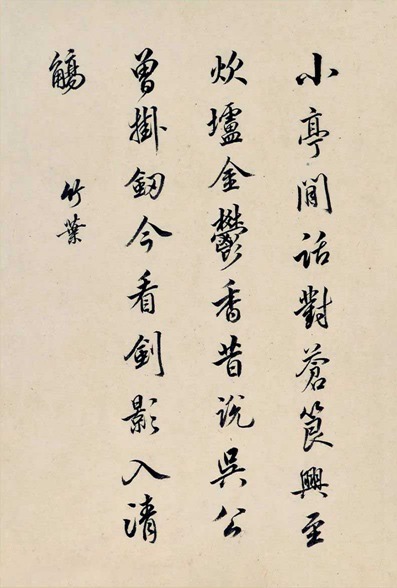 小亭閒話對蒼筤興至
炊壚金鬱香昔說吳公
曾掛劒今看劍影入清
觴 竹葉